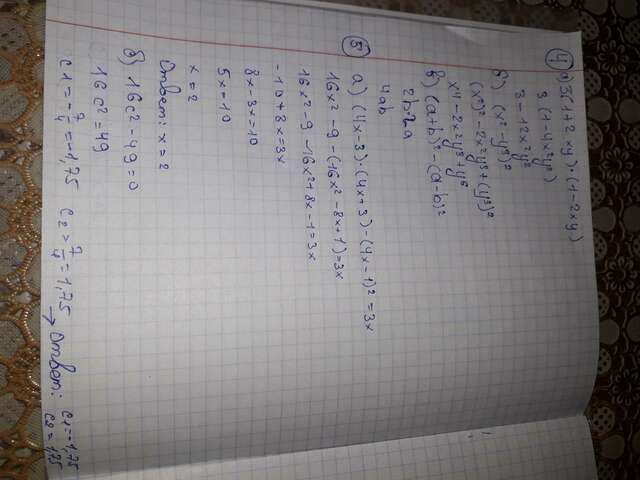 4 a) 3(1+2xy)·(1-2xy)
3(1-4x²y²)
3-12x²y²
б) (x²-y³)²
(x²)²-2x²y³+(y³)²
x⁴-2x²y³+y⁶
в) (a+b)²-(a-b)²
2b·2a
4ab
5 а) (4x-3)·(4x+3)-(4x-1)²=3x
16x²-9-(16x²-8x+1)=3x
16x²-9-16x²+8x-1=3x
-10+8x=3x
8x-3x=10
5x=10
x=2
Ответ: x=2
б) 16c²-49=0
16c²=49
c1=-7/4=-1,75 c2=7/4=1,75 → Ответ: c1=-1,75
c2=1,75